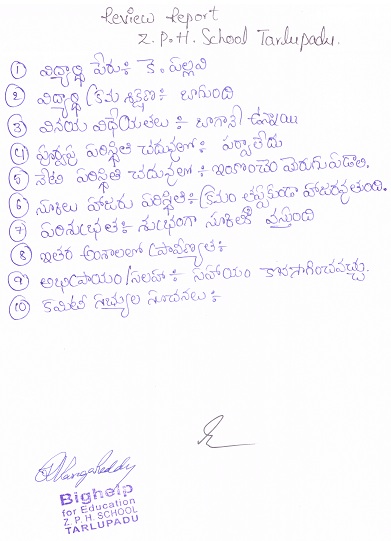 Review Report
Z. P. H. School Tarlupadu.
① విద్యార్థి పేరు ÷ కె. పల్లవి
② విద్యార్థి క్రమశిక్షణ ÷ బాగుంది
③ వినయ విధేయతలు ÷ బాగానే ఉన్నాయి
④ పూర్వపు పరిస్థితి చదువులో ÷ పర్వాలేదు
⑤ నేటి పరిస్థితి చదువులో ÷ ఇంకొంచెం మెరుగుపడాలి.
⑥ స్కూలు హాజరు పరిస్థితి ÷ క్రమం తప్పకుండా హాజరవ్వుతుంది.
⑦ పరిశుభ్రత ÷ శుభ్రంగా స్కూలుకి వస్తుంది
⑧ ఇతర అంశాలలో ప్రావీణ్యత ÷
⑨ అభిప్రాయం/సలహా ÷ సహాయం కొనసాగించవచ్చు.
⑩ కమిటీ సభ్యుల సూచనలు ÷
Bighelp
for Education
Z. P. H. SCHOOL
TARLUPADU